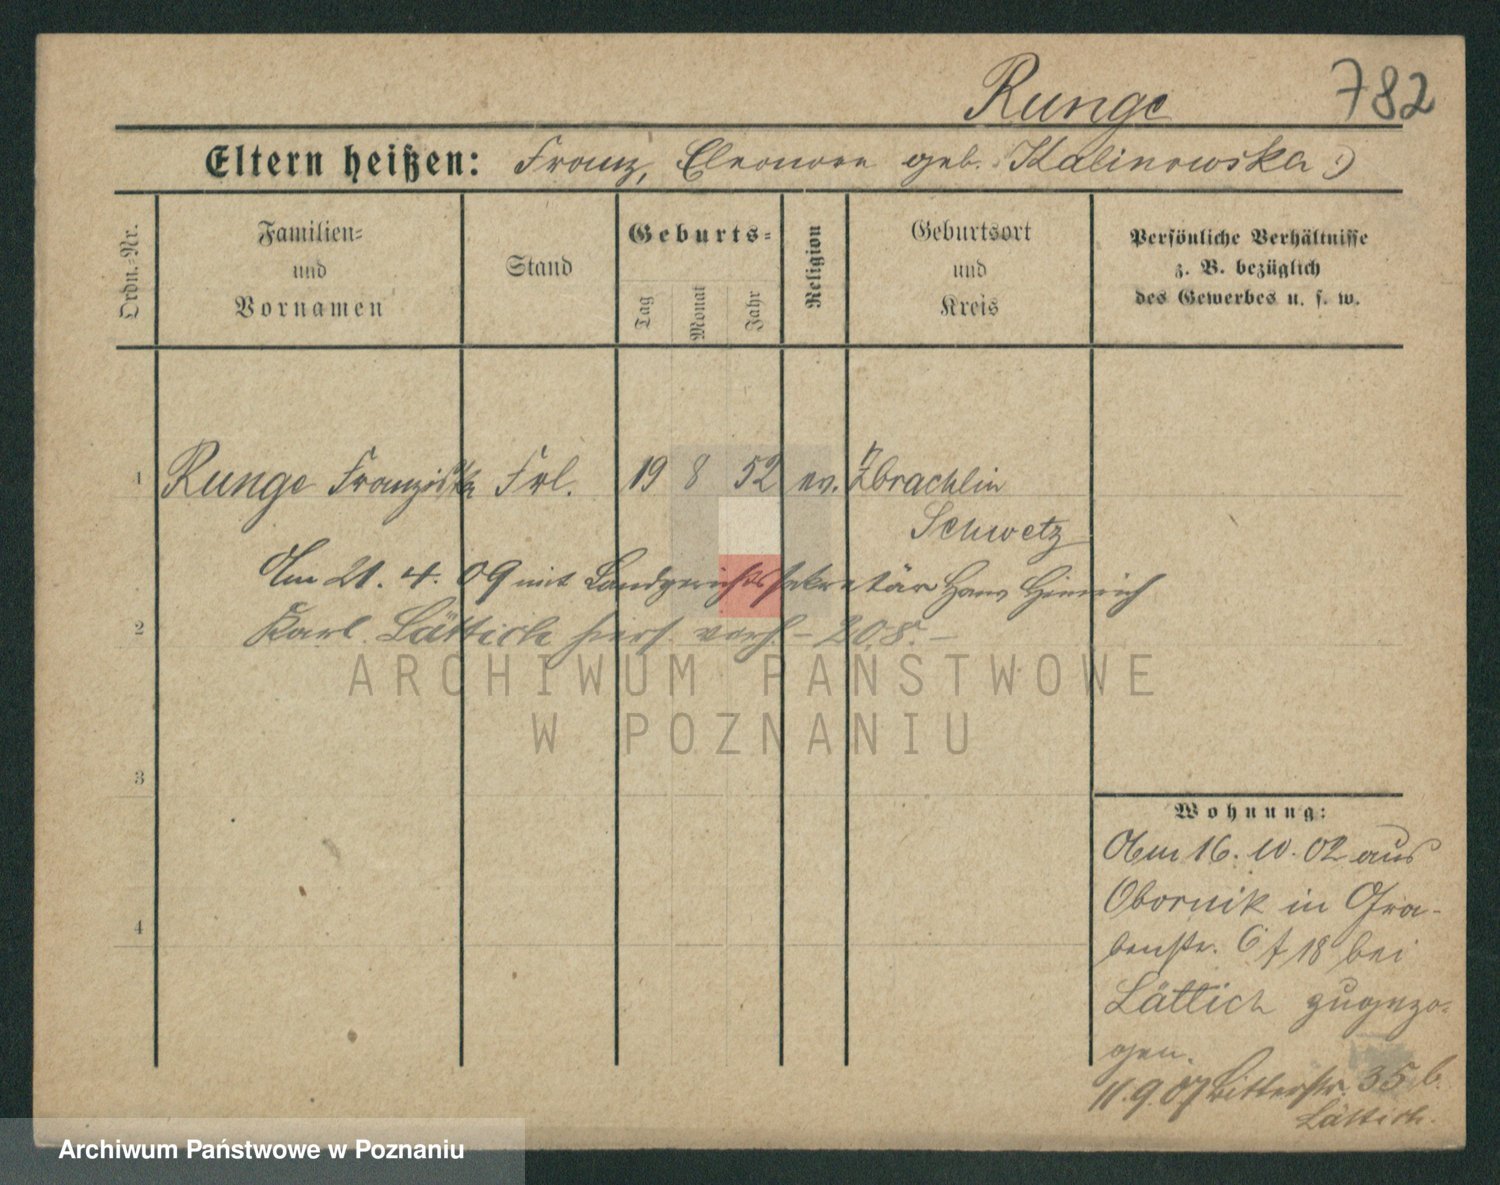 Runge 782
Eltern heißen: Franz, Eleonore geb. Kalinowska :)
Ordn.-Nr.
Familien-
und
Vornamen
Stand
Geburts-
Tag
Monat
Jahr
Religion
Geburtsort
und
Kreis
Persönliche Verhältnisse
z. B. bezüglich
des Gewerbes u. s. w.
1 Runge Franziska Frl. 19 8 52 ev. Zbrachlin
Schwetz
Am 21. 4. 09 mit Landgerichtssekretär Hans Hinrich
2 Karl Lättich hiers. verh. – 208. –
3
4
Wohnung:
Am 16. 10. 02 aus
Obornik in Gra-
benstr. 6 f 18 bei
Lättich zugezo-
gen.
11.9.07 Ritterstr. 35 b.
Lättich.
ARCHIWUM PAŃSTWOWE
W POZNANIU
Archiwum Państwowe w Poznaniu